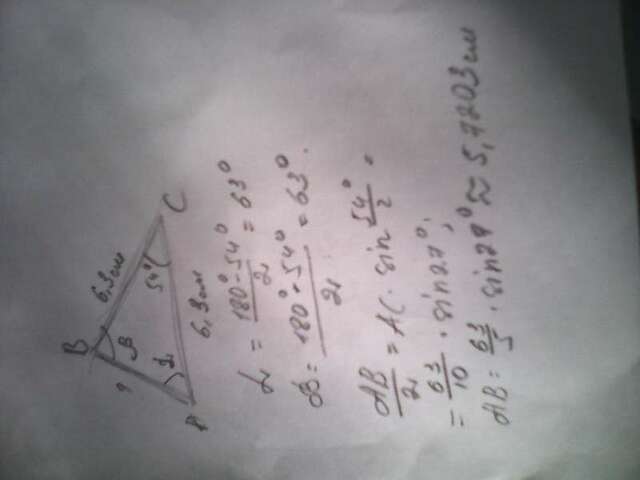 B
6,3см
C
54°
β
?
α
A
6,3см
α = (180° - 54°)/2 = 63°
β = (180° - 54°)/2 = 63°.
AB/2 = AC · sin 54°/2 =
= 63/10 · sin27°;
AB = 63/5 · sin27° ≈ 5,7203см